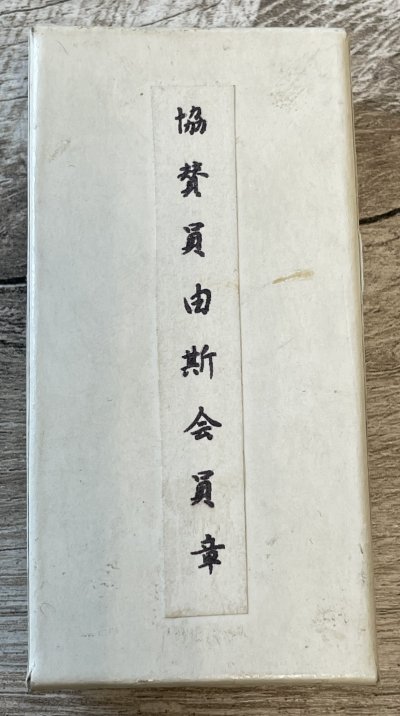 協賛員由斯会員章